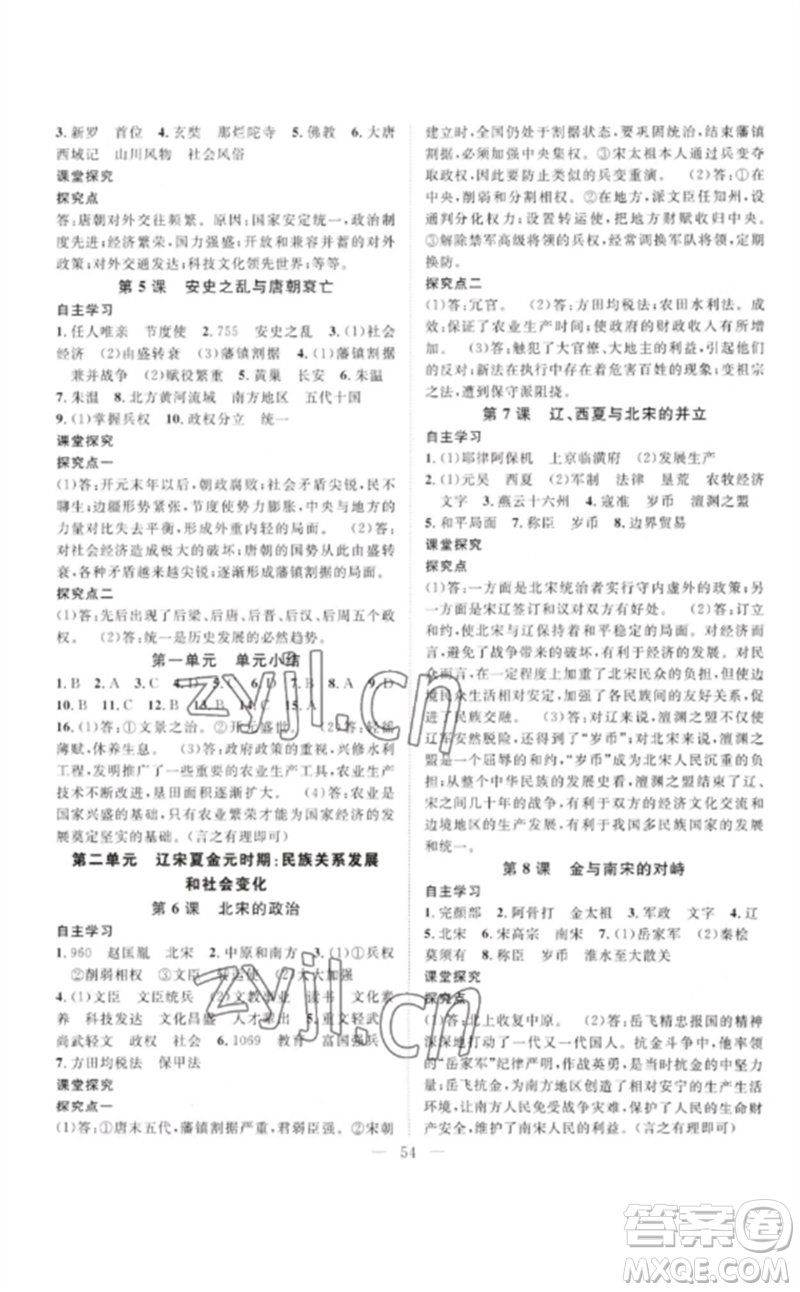 3.新罗 首位 4.玄奘 那烂陀寺 5.佛教 6.大唐
西域记 山川风物 社会风俗
课堂探究
探究点
答:唐朝对外交往频繁。原因:国家安定统一,政治制
度先进;经济繁荣,国力强盛;开放和兼容并蓄的对外
政策;对外交通发达;科技文化领先世界;等等。
第 5 课 安史之乱与唐朝衰亡
自主学习
1.任人唯亲 节度使 2.755 安史之乱 3.(1)社会
经济 (2)由盛转衰 (3)藩镇割据 4.(1)藩镇割据
兼并战争 (2)赋役繁重 5.黄巢 长安 6.朱温
7.朱温 8.北方黄河流域 南方地区 五代十国
9.(1)掌握兵权 10.政权分立 统一
课堂探究
探究点一
(1)答:开元末年以后,朝政腐败;社会矛盾尖锐,民不
聊生;边疆形势紧张,节度使势力膨胀,中央与地方的
力量对比失去平衡,形成外重内轻的局面。 (2)答:
对社会经济造成极大的破坏;唐朝的国势从此由盛转
衰,各种矛盾越来越尖锐;逐渐形成藩镇割据的局面。
探究点二
(1)答:先后出现了后梁、后唐、后晋、后汉、后周五个政
权。 (2)答:统一是历史发展的必然趋势。
第一单元 单元小结
1.B 2.A 3.C 4.D 5. 6.B 7.B 8.A 9.D
10.B 11.C 12.C 13.B 14.C 15.A
16.(1)答:文景之治。 (2)答:开元盛世。 轻徭
薄赋,休养生息。 (3)答:政府政策的重视,兴修水利
工程,发明、推广了一些重要的农业生产工具,农业生产
技术不断改进,耕地面积逐渐扩大。 (4)答:农业是
国家兴盛的基础,只有农业繁荣才能为国家经济的发
展奠定坚实的基础。(言之有理即可)
第二单元 辽宋夏金元时期:民族关系发展
和社会变化
第 6 课 北宋的政治
自主学习
1.960 赵匡胤 北宋 2.中原和南方 3.(1)①兵权
②削弱相权 ③文臣 转运使 (2)大大加强
4.(1)文臣 文臣统兵 (2)文教事业 读书 文化素
养 科技发达 文化昌盛 人才辈出 5.重文轻武
尚武轻文 政权 社会 6.1069 教育 富国强兵
7.方田均税法 保甲法
课堂探究
探究点一
(1)答:①唐末五代,藩镇割据严重,君弱臣强。②宋朝
建立时,全国仍处于割据状态,要实现统一,结束藩镇
割据,必须加强中央集权。③宋太祖本人通过兵变夺
取政权,为了防止类似的兵变重演。 (2)答:①在
中央,削弱和分割相权。②在地方,派文臣任知州,设
通判分化权力;设置转运使,把地方财赋收归中央。
③解除禁军高级将领的兵权,控制军队,禁军定期
换防。
探究点二
(1)答:冗官。 (2)答:方田均税法;农田水利法。成
效:保证了农业生产时间;使政府的财政收入有所增
加。 (3)答:触犯了大官僚、大地主的利益,引起他们
的反对;新法在执行中存在着危害百姓的现象;变祖宗之
法,遭到保守派阻挠。
第 7 课 辽、西夏与北宋的并立
自主学习
1.(1)耶律阿保机 上京临潢府 (2)发展生产
2.(1)元昊 西夏 (2)军制 法律 垦荒 农牧经济
文字 3.燕云十六州 4.寇准 岁币 澶渊之盟
5.和平局面 7.称臣 岁币 8.边界贸易
课堂探究
探究点
(1)答:一方面是北宋统治者实行守内虚外的政策;另
一方面是宋辽签订和议对双方有好处。 (2)答:订立
和约,使北宋与辽保持着和平稳定的局面。对于政府
而言,避免了战争带来的破坏和更大的损失;对于民
众而言,岁币虽加重了北宋民众的负担,但使双方边
境民众生活相对稳定,有利于双方的经济发展,也促
进了民族交融。 (3)答:对辽来说,澶渊之盟不仅使
辽军安然脱险,还得到了“岁币”;对宋来说,澶渊之
盟是一个屈辱的和约,“岁币”成为北宋人民沉重的负
担;从整个中华民族的发展史来看,澶渊之盟结束了辽、
宋之间几十年的战争,有利于双方的经济文化交流和
边境地区的生产发展,有利于我国多民族国家的发展和
统一。
第 8 课 金与南宋的对峙
自主学习
1.完颜部 2.阿骨打 金太祖 3.军政 文字 4.辽
5.北宋 6.宋高宗 南宋 7.(1)岳家军 (2)秦桧
莫须有 8.称臣 岁币 淮水至大散关
课堂探究
探究点
(1)答:北上收复中原。 (2)答:岳飞精忠报国的精神
深深地打动了一代又一代国人。抗金斗争中,他率领
的“岳家军”纪律严明,作战英勇,是抗金的中坚力量;
岳飞抗金,为南方地区创造了相对安宁的生产生活
环境,让南方人民免受战争灾难,保护了人民的生命财
产安全,维护了南宋人民的利益。(言之有理即可)
54
zyjl.cn
zyjl.cn
答案圈
MXQE.COM